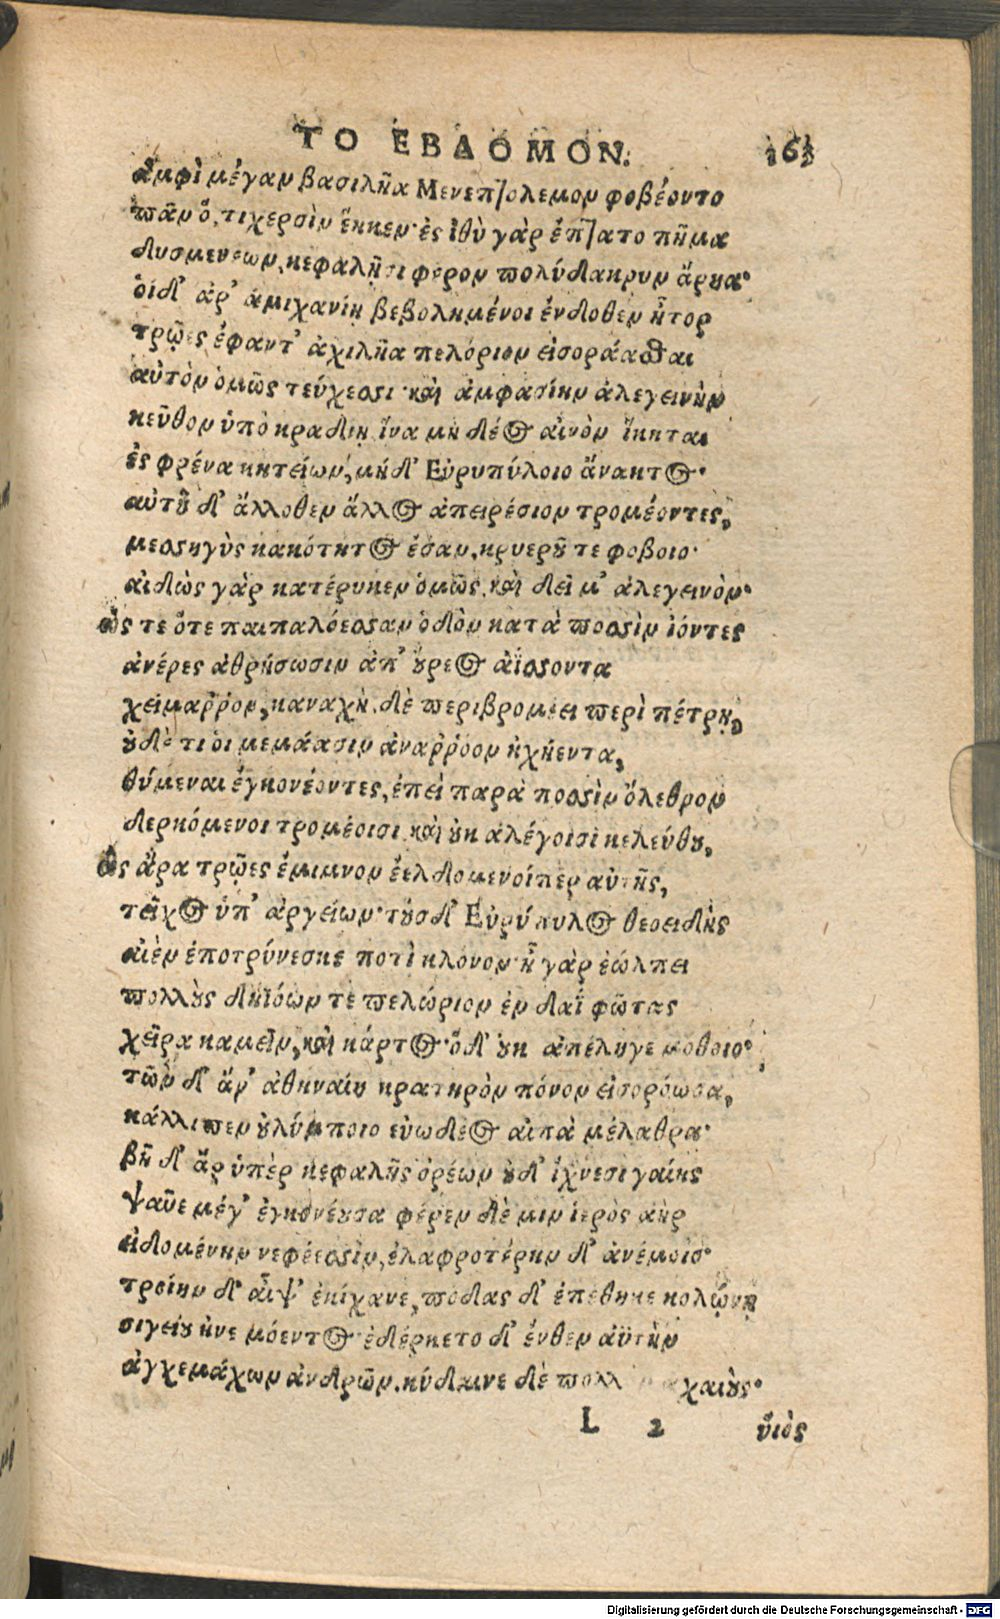 ΤΟ ΕΒΔΟΜΟΝ. 163
ἀμφὶ μέγαν βασιλῆα Μενεπτολεμον φοβέοντο
πᾶν ὅ, τι χερσὶν ἕηκεν· ἐς ἰθὺ γὰρ ἔπτατο πῆμα
δυσμενεων, κεφαλῇσι φερον πολύδακρυν ἄρηα·
οἱ δ' ἀρ' ἀμιχανίῃ βεβολημένοι ἔνδοθεν ἦτορ
τρῷες ἔφαντ' ἀχιλῆα πελόριον εἰσοράασθαι
αὐτὸν ὁμῶς τεύχεσσι· καὶ ἀμφασίην ἀλεγεινὴν
κεῦθον ὑπὸ κραδιῃ ἵνα μὴ δέος αἰνὸν ἵκηται
ἐς φρένα κητείων, μήδ' Εὐρυπύλοιο ἄνακτος·
αὐτοῦ δ' ἄλλοθεν ἄλλος ἀπειρέσιον τρομέοντες,
μεσσηγὺς κακότητος ἔσαν, κρυεροῦ τε φοβοιο·
αἰδὼς γὰρ κατέρυκεν ὁμῶς, καὶ δεῖμ' ἀλεγεινὸν·
ὡς τε ὅτε παιπαλόεσσαν ὁδὸν κατὰ ποσσὶν ἰόντες
ἀνέρες ἀθρήσωσιν ἀπ' οὔρεος ἀΐσσοντα
χείμαῤῥον, καναχὴ δὲ περιβρομέει περὶ πέτρῃ,
οὐδὲ τι οἱ μεμάασιν ἀναῤῥόον ἠχήεντα,
θύμεναι ἐγκονέοντες, ἐπεὶ παρὰ ποσσὶν ὄλεθρον
δερκόμενοι τρομέοισι καὶ οὐκ ἀλέγοισι κελεύθου,
ὣς ἄρα τρῷες ἔμιμνον ἐελδομενοί περ αὐτῆς,
τεῖχος ὑπ' ἀργείων· τοὺς δ' Εὐρύπυλος θεοειδὴς
αἰὲν ἐποτρύνεσκε ποτὶ κλόνον· ἦ γὰρ ἐώλπει
πολλοὺς δηϊόων τε πελώριον ἐν δαῒ φῶτας
χεῖρα καμεῖν, καὶ κάρτος· ὃ δ' οὐκ ἀπέληγε μοθοιο·
τῶν δ' ἄρ' ἀθηναίη κρατηρὸν πόνον εἰσορόωσα,
κάλλιπεν οὐλύμποιο εὐωδέος αἰπὰ μέλαθρα·
βῆ δ' ἄρ ὑπὲρ κεφαλῆς ὀρέων οὐδ' ἴχνεσι γαίης
ψαῦε μέγ' ἐγκονέουσα φέρεν δὲ μιν ἱερὸς ἀὴρ
εἰδομένην νεφέεσσιν, ἐλαφροτέρην δ' ἀνέμοισ·
τροίην δ' αἶψ' ἐκίχανε, ποδας δ' ἐπέθηκε κολώνῃ
σιγείου ἠνεμόεντος· ἐδέρκετο δ' ἔνθεν ἀϋτὴν
ἀγχεμάχων ἀνδρῶν. κύδαινε δὲ πολλ χαιοὺς·
L 2 ὑιὸς
Digitalisierung gefördert durch die Deutsche Forschungsgemeinschaft - DFG